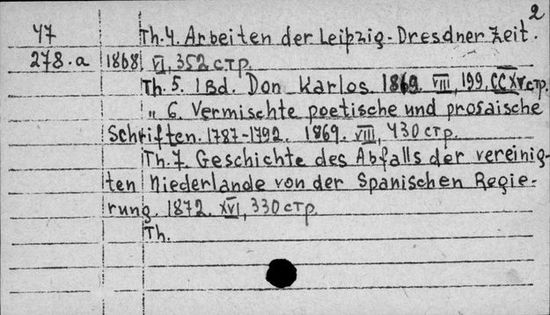 2
47 Th. 4. Arbeiten der Leipzig-Dresdner Zeit.
278.a 1868 VI, 352 стр.
Th. 5. 1 Bd. Don Karlos. 1869. VIII, 199, CCXV стр.
„ 6. Vermischte poetische und prosaische
Schriften. 1787-1792. 1869. VIII, 430 стр.
Th. 7. Geschichte des Abfalls der vereinig-
ten Niederlande von der Spanischen Regie-
rung. 1872. XVI, 330 стр.
Th.